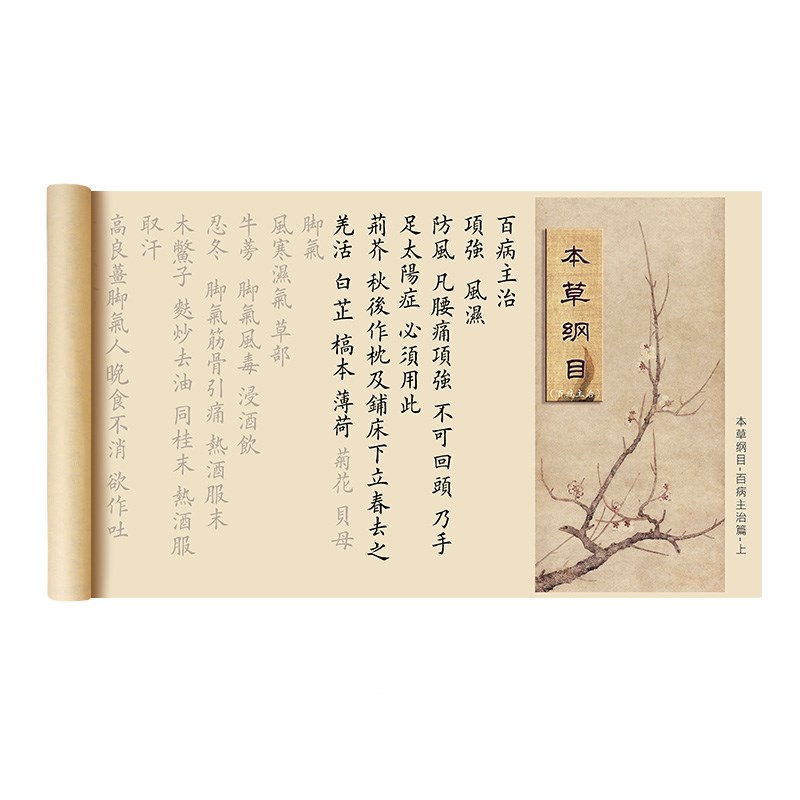 本草纲目
(百病主治)
本草纲目-百病主治篇-上
百病主治
項強 風濕
防風 凡腰痛項強 不可回頭 乃手
足太陽症 必須用此
荊芥 秋後作枕及鋪床下立春去之
羌活 白芷 槁本 薄荷 菊花 貝母
脚氣
風寒濕氣 草部
牛蒡 脚氣風毒 浸酒飲
忍冬 脚氣筋骨引痛 熱酒服末
木鱉子 麩炒去油 同桂末 熱酒服
取汗
高良薑脚氣人晚食不消 欲作吐